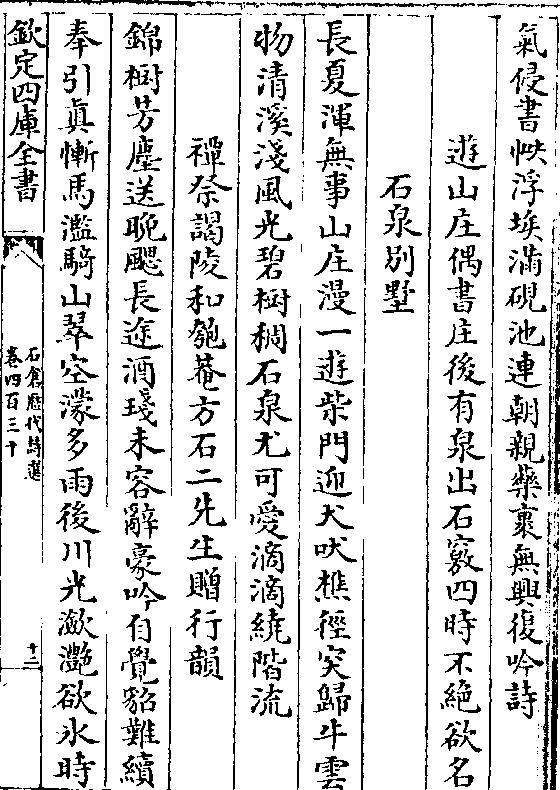 氣侵書帙浮埃滿硯池連朝親藥裹無興復吟詩
遊山庄偶書庄後有泉出石竅四時不絶欲名
石泉别墅
長夏渾無事山庄漫一遊柴門迎犬吠樵徑突歸牛雲
物清溪淺風光碧樹稠石泉尤可愛滴滴繞階流
禫祭謁陵和匏菴方石二先生贈行韻
錦樹芳塵送晩颸長途酒琖未容辭豪吟自覺貂難續
奉引真慚馬濫騎山翠空濛多雨後川光瀲灔欲氷時
欽定四庫全書
石倉歴代詩選
卷四百三十
十二